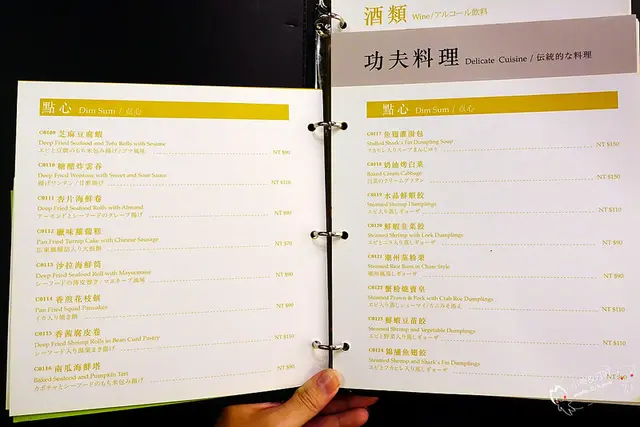 點心 Dim Sum / 点心
C0109 芝麻豆腐蝦
Deep Fried Seafood and Tofu Rolls with Sesame
NT $90
C0110 糖醋炸雲吞
Deep Fried Wontons with Sweet and Sour Sauce
揚げワンタン / 甘酢掛け NT $110
C0111 杏片海鮮卷
Deep Fried Seafood Rolls with Almond
アーモンドとシーフードのクレープ揚げ NT $90
C0112 臘味蘿蔔糕
Pan Fried Turnip Cake with Chinese Sausage
広東風腸詰入り大根餅 NT $70
C0113 沙拉海鮮筒
Deep Fried Seafood Roll with Mayonnaise
シーフードの湯皮巻き / マヨネーズ風味 NT $90
C0114 香煎花枝餅
Pan Fried Squid Pancakes
イカ入り焼き餅 NT $90
C0115 香茜腐皮卷
Deep Fried Shrimp Rolls in Bean Curd Pastry
シーフード入り湯葉まき揚げ NT $110
C0116 南瓜海鮮塔
Baked Seafood and Pumpkin Tart
カボチャとシーフードのもち米包み揚げ
酒類 Wine/アルコール飲料
功夫料理 Delicate Cuisine / 伝統的な料理
點心 Dim Sum / 点心
C0117 魚翅灌湯包
Stuffed Shark's Fin Dumpling Soup
フカヒレ入りスープまんじゅう NT $150
C0118 奶油烤白菜
Baked Cream Cabbage
白菜のクリームグラタン NT $150
C0119 水晶鮮蝦餃
Steamed Shrimp Dumplings
エビ入り蒸しギョーザ NT $110
C0120 鮮蝦韭菜餃
Steamed Shrimp with Leek Dumplings
エビとニラ入り蒸しギョーザ NT $90
C0121 潮州蒸粉果
潮州風蒸しギョーザ NT $90
C0122 蟹粉燒賣皇
Steamed Prawn & Pork with Crab Roe Dumplings
NT $110
C0123 鮮蝦豆苗餃
Steamed Shrimp and Vegetable Dumplings
エビと野菜入り蒸しギョーザ NT $110
C0124 錦繡魚翅餃
Steamed Shrimp and Shark's Fin Dumplings
エビとフカヒレ入り蒸しギョーザ